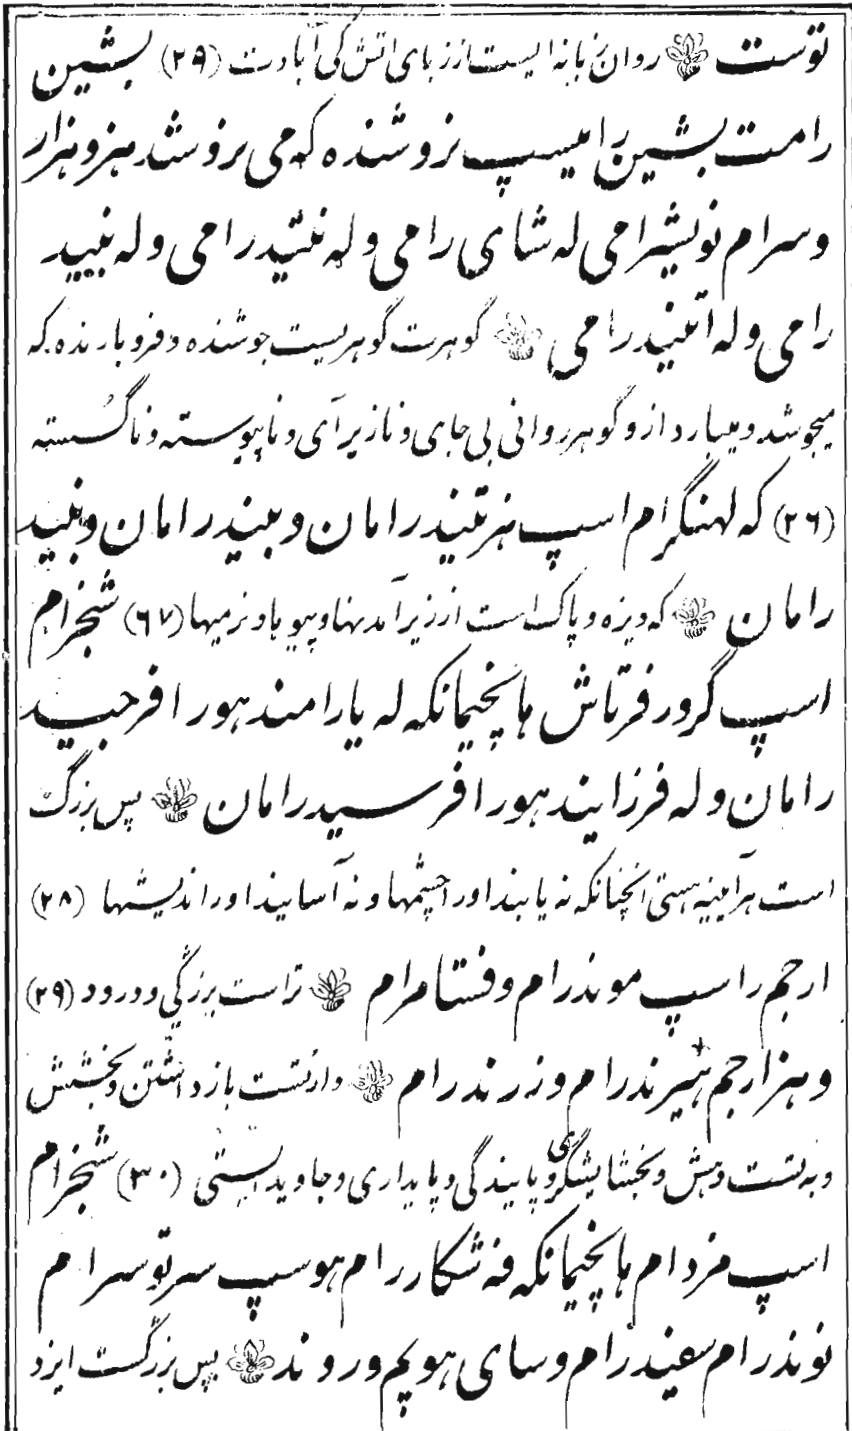 تو است روان زبانه ایست از زبهای اتش گی آبادت (۲۹) بشین
رامت بشین رامیسپ نروشنده که می بروشد هزو هزار
وسرام نویشرامی له شای رامی وله نتید رامی وله نبید
رامی وله اتیند رامی گوهرت گوهریست جوشنده و فروبارنده که
میجوشد و میبارد ازو گوهر روانی بی جای و نازیر آی و ناپیوسته و ناگسسته
(۲۶) که لهنگرام اسپ هرتیند رامان و بیند رامان و نبید
رامان که ویزه و پاک است از زیر آمدنها و پیوپا و نرمیها (۶۷) شجزام
اسپ گرور فرتاش هایجیمانکه له یارامند هور افرجید
رامان وله فرزایند هور افرسید رامان پس بزرگ
است هرآینه هستی آنچنانکه نه یابند اورا چشمها و نه آسایند اورا اندیشها (۲۸)
ارجم راسپ موندرام وفنتامرام تراست بزرگی و درود (۲۹)
وهزارجم هیرندرام وزرندرام و از تست بازداشتن و بخشش
و به تست دهش و بخشایشگری و پایندگی و پایداری و جاوید هستی (۳۰) شجزام
اسپ مزدام هایجیمانکه فه شکاررام هوسپ سرتوسرام
نوندرام سفیندرام وسای هوپم وروند پس بزرگست ایزد